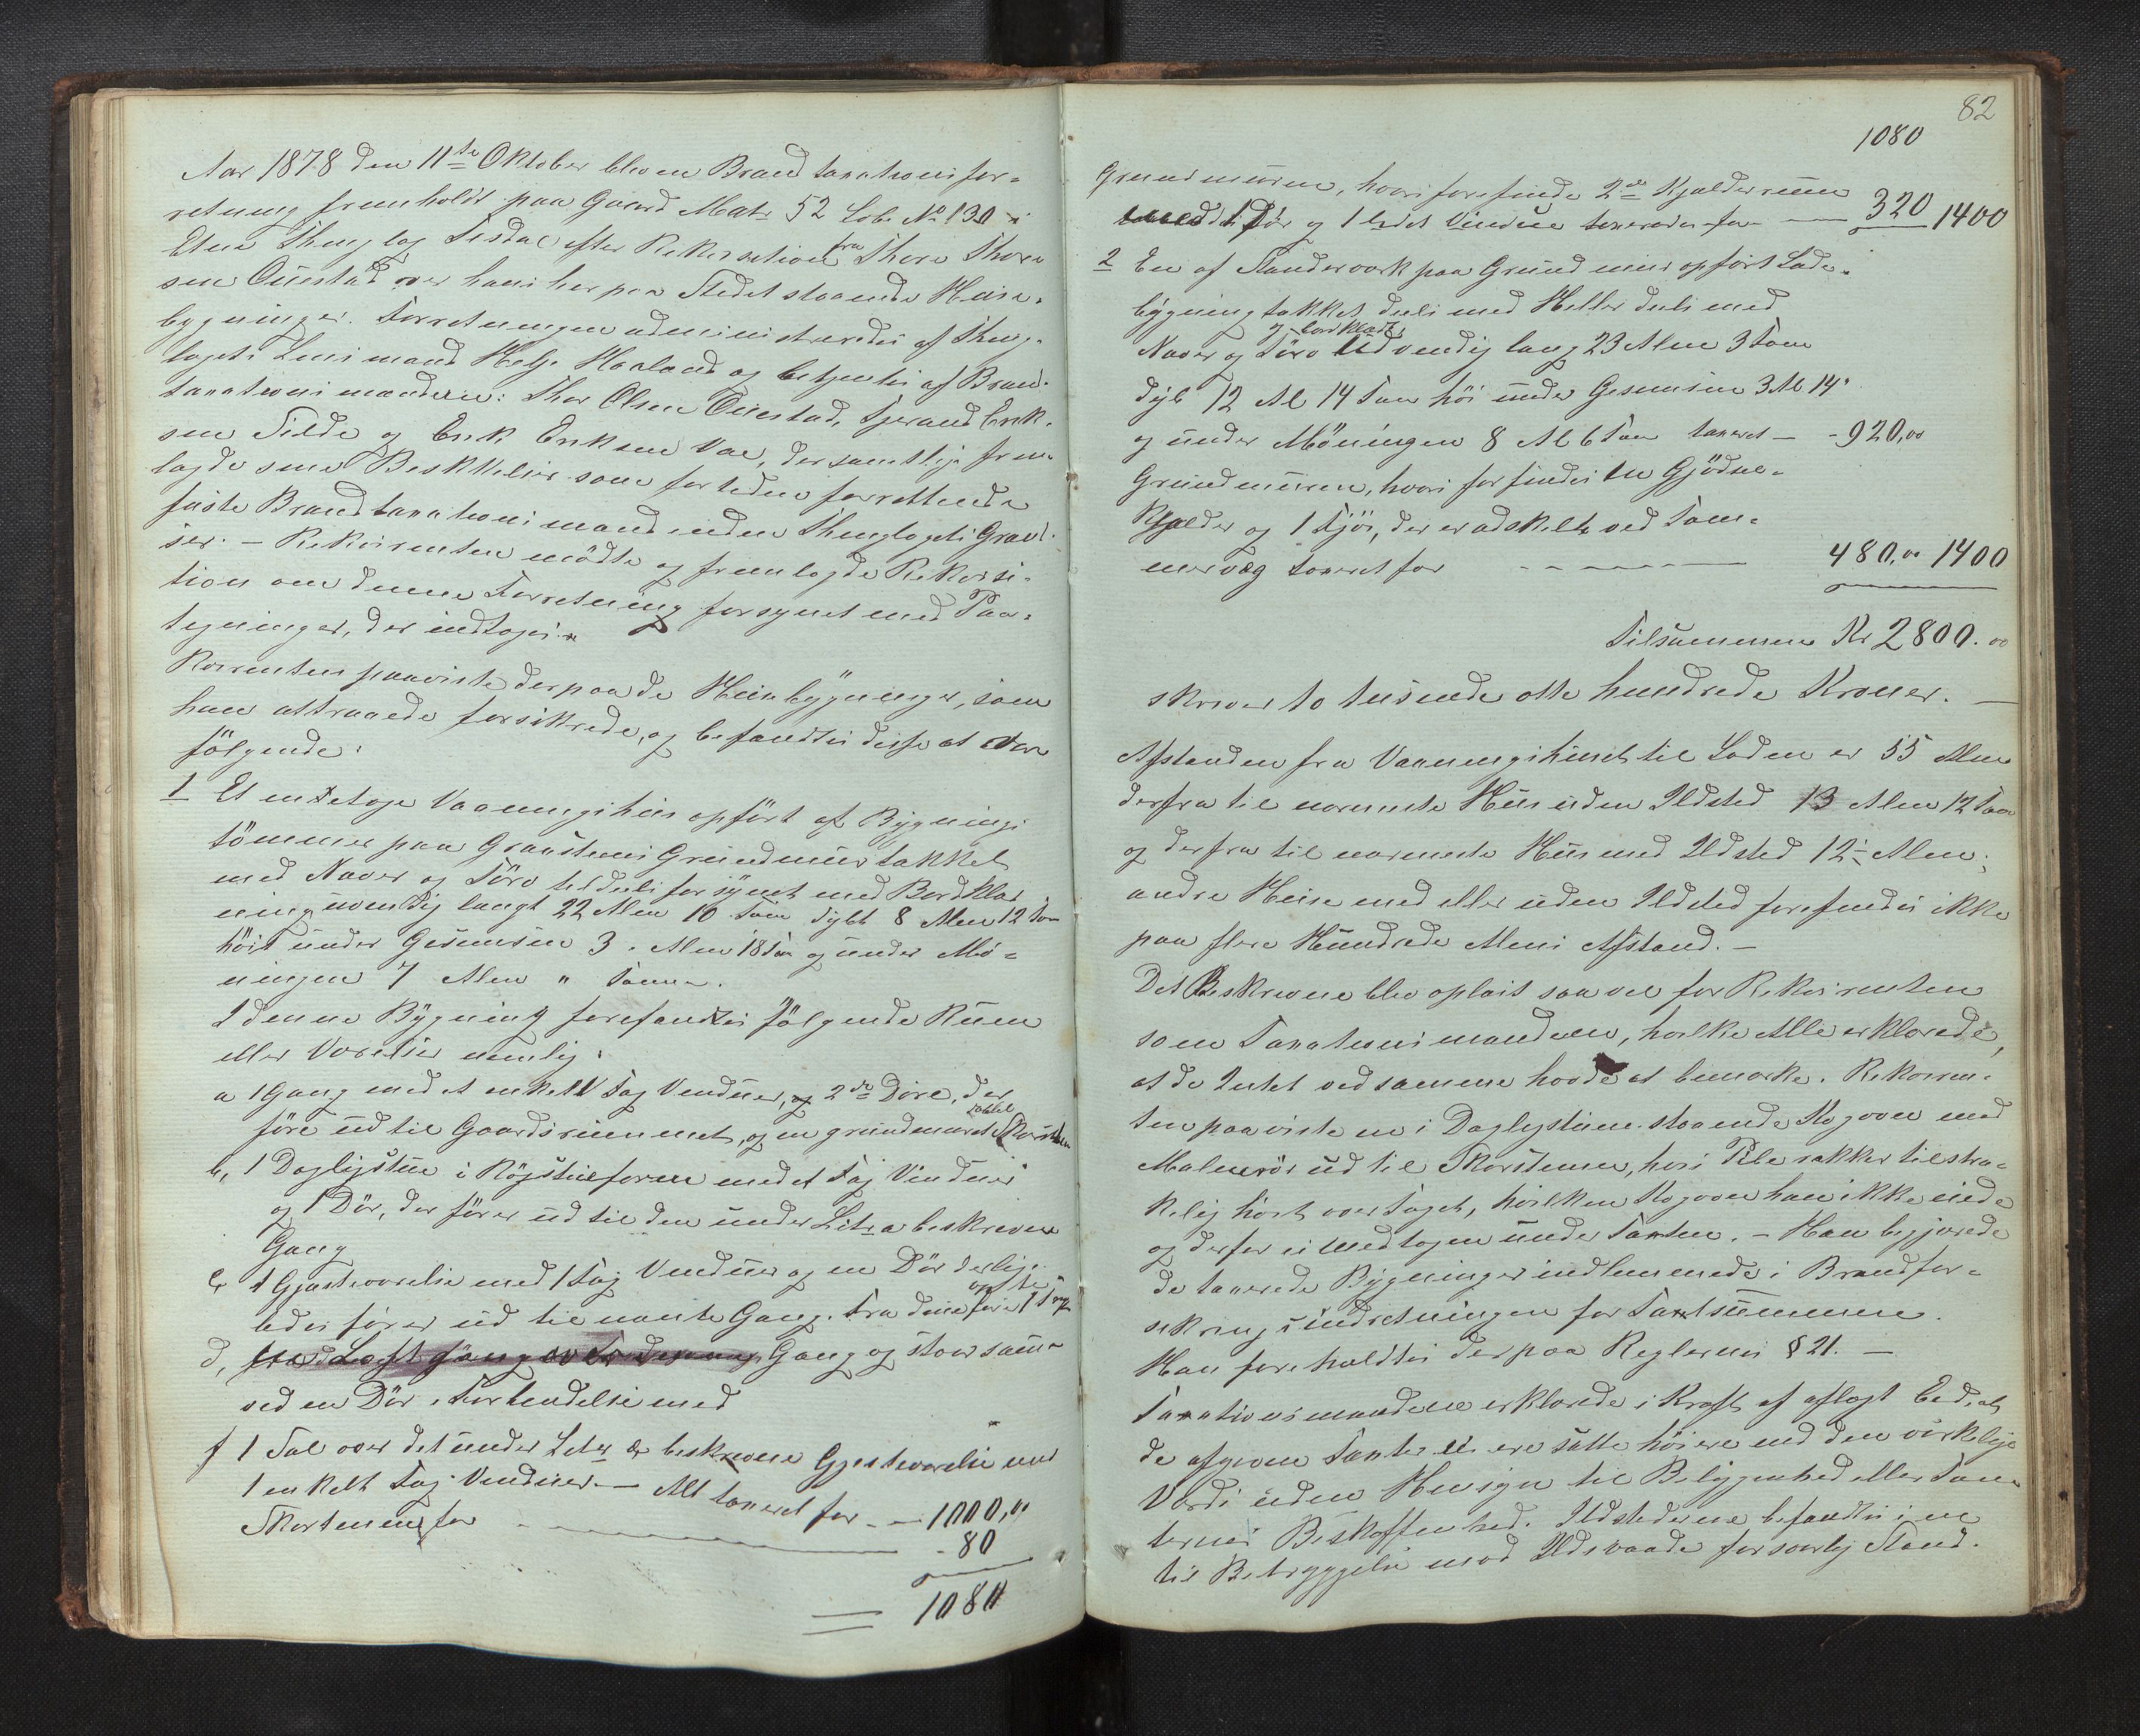 Aar 1878 den 11te Oktober blev en Brandtaxationsfor-
retning fremholdt paa Gaard Matr 52 Lob. No 130 i
Etne Thinglag Tisdal efter Rekvisition fra Thore Thore
sen Øvestad over hans her paa Stedet staaende Huse-
bygninger. Forretningen administreredes af Thing-
lagets Lensmand Helje Haaland og betjentes af Brand-
taxationsmændene: Thor Olsen Øvestad, Tjerand Erik-
sen Silde og Erik Eriksen Vae, der samtlige frem-
lagde sine Beskikkelser som for tiden forrettende
faste Brandtaxationsmænd inden Thinglagets Grænd-
ser. – Rekvirenten mødte og fremlagde Rekvisi-
tion om denne Forretning forsynet med Paa-
tegninger, der indtages.
Rkvirenten paaviste derpaa de Huusbygninger, som
han attraaede forsikrede, og befandtes disse at være
følgende:
1 Et en Etages Vaaningshuus opført af Bygnings
tømmer paa Graasteens Grundmuur takket
med Næver og Törv tildeels forsynet med Bordklæd
ning udvendig langt 22 Alen 10 Tom dybt 8 Alen 12 Tom
høit under Gesimsen 3 Alen 18 Tom og under Mø-
ningen 7 Alen " Tomme.
I denne Bygning forefandtes følgende Rum
eller Værelser nemlig:
a 1 Gang med et enkelt Fag Venduer, og 2de Døre, der
føre ud til Gaardsrummet, og en grundmuret dobbel Skorsten
b, 1 Dagligstue i Røgstueform med et Fag Vinduer
og 1 Dør, der fører ud til den under Litr a beskrevne
Gang
c 1 Gjesteværelse med 1 Fag Venduer og en Dør derlige-
ledes fører ud til nævnte Gang. Fra denne fører 1 Trap
op til
d, Gang og staar sam-
ved en Dør i Forbindelse med
f 1 Sal over det under Litr c beskrevne Gjesteværelse med
1 enkelt Fag Venduer. – Alt taxeret for – 1000,00
Skorstenen for – 80
1080
82
1080
Grundmuren, hvori forefindes 2de Kjælderrum
med 1 Dør og 1 Vindue taxeredes for – 320 1400
2 En af Standerværk paa Grundmuur opført Lade-
bygning takket deels med Heller deels med
og bordklædt
Næver og Törv Udvendig lang 23 Alen 3 Tom
dyb 12 Al 14 Tom høi under Gesimsen 3 Al 14"
og under Møningen 8 Al 6 Tom taxeret – 920,00
Grundmuren, hvori forfindes en Gjødsel-
Kjælder og 1 Fjøs, der er adskilte ved Tøm-
mervæg taxeret for – 480,00 1400
Tilsammen Kr 2800.00
skriver to tusinde otte hundrede Kroner. –
Afstanden fra Vaaningshuset til Laden er 55 Alen
derfra til nærmeste Huus uden Ildsted 13 Alen 12 Tom
og derfra til nærmeste Huus med Ildsted 12 Alen;
andre Huse med eller uden Ildsted forefindes ikke
paa flere Hundrede Alens Afstand. –
Det Beskrevne blev oplæst saavel for Rekvirenten
som Taxationsmændene, hvilke Alle erklærede,
at de Intet ved samme havde at bemærke. Rekviren-
ten paaviste en i Dagligstuen staaende Kogovn med
Malmrør ud til Skorstenen, hvis Pibe rækker tilstræ-
kelig høit over Taget, hvilken Kogovn han ikke eiede
og derfor ei medtagen under Taxten. – Han begjærede
de taxerede Bygninger indlemmede i Brandfor-
sikringsindretningen for Taxtsummen.
Han foreholdtes derpaa Reglerne § 21. –
Taxationsmændene erklærede i Kraft af aflagt Eed, at
de afgivne Taxter ei ere satte høiere end den virkelige
Værdi uden Hensyn til Beliggenhed eller Tom-
ternes Beskaffenhed. Ildstederne befandtes i en
til Betryggelse mod Ildsvaade forsvarlig Stand.